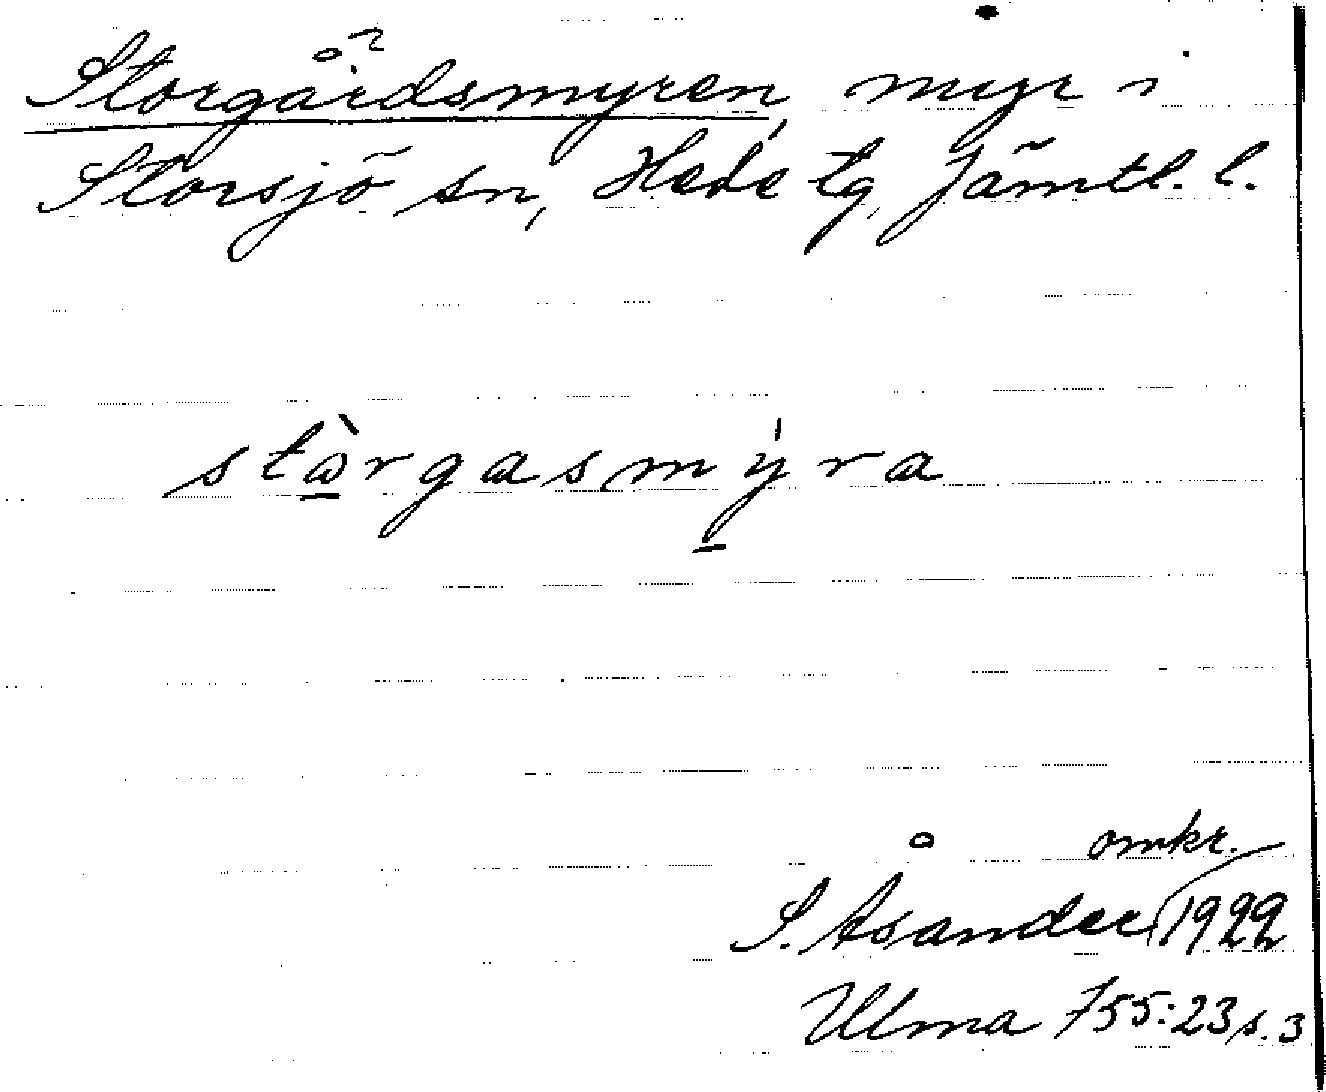 Storgårdsmyren, myr i
Storsjö sn, Hede tg, Jämtl. l.
stὼ̱rgasmý̱ra
omkr.
S. Åsander 1922
Ulma 755:23 s. 3